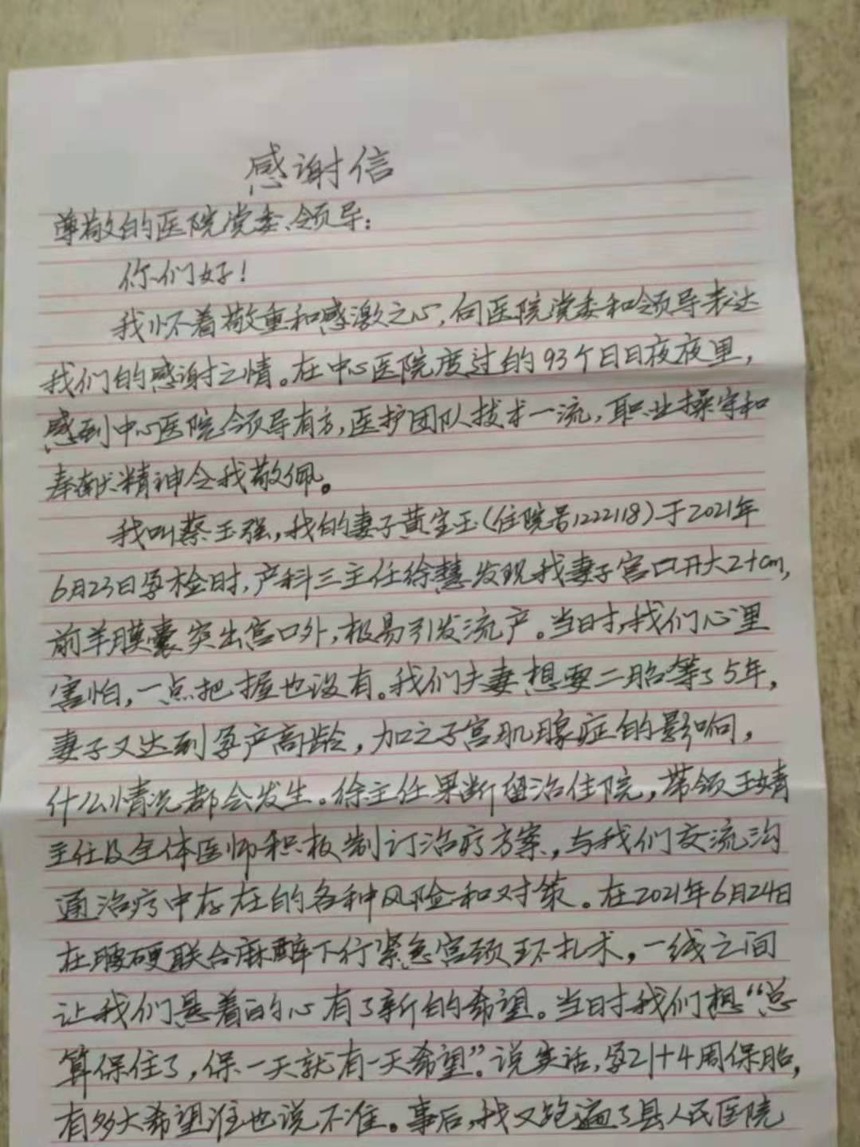 感谢信
尊敬的医院党委、领导：
你们好！
我怀着敬重和感激之心，向医院党委和领导表达
我们的感谢之情。在中心医院度过的93个日日夜夜里，
感到中心医院领导有方，医护团队技术一流，职业操守和
奉献精神令我敬佩。
我叫蔡玉强，我的妻子黄宝玉（住院号1222118）于2021年
6月23日孕检时，产科三主任徐慧发现我妻子宫口开大2+cm，
前羊膜囊突出宫口外，极易引发流产。当日时，我们心里
害怕，一点把握也没有。我们夫妻想要二胎等了5年，
妻子又达到孕产高龄，加之子宫肌腺症的影响，
什么情况都会发生。徐主任果断留治住院，带领王婧
主任及全体医师积极制订治疗方案，与我们交流沟
通治疗中存在的各种风险和对策。在2021年6月24日
在腰硬联合麻醉下行紧急宫颈环扎术，一线之间
让我们悬着的心有了新的希望。当日时我们想“总
算保住了，保一天就有一天希望”。说实话，孕21+4周保胎，
有多大希望谁也说不准。事后，我又跑遍了县人民医院